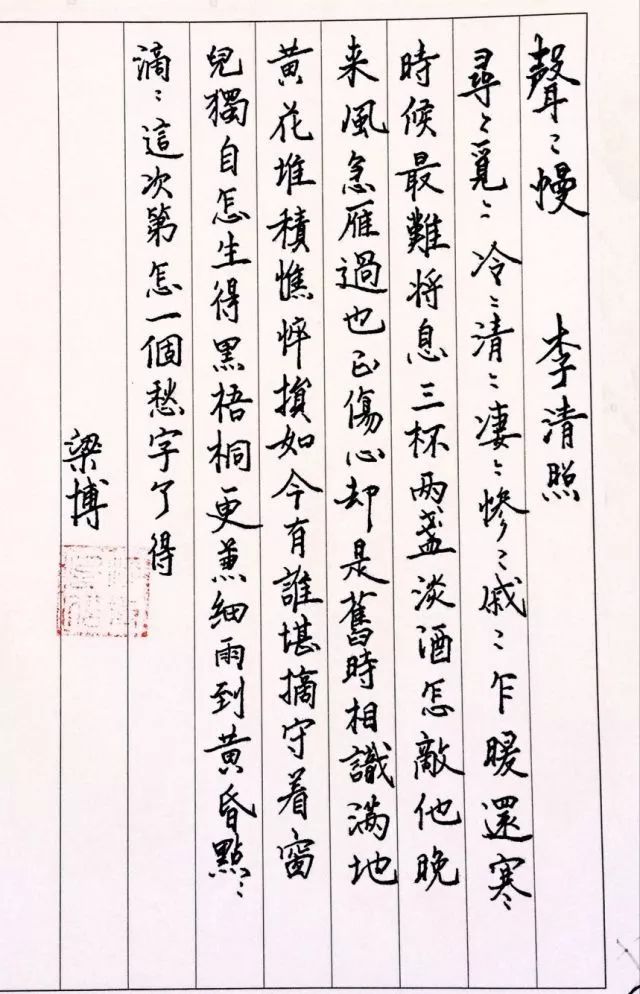 聲〻慢 李清照
尋〻覓〻冷〻清〻凄〻慘〻戚〻乍暖還寒
時候最難将息三杯兩盞淡酒怎敵他晚
来風急雁過也正傷心却是舊時相識滿地
黄花堆積憔悴損如今有誰堪摘守着窗
兒獨自怎生得黑梧桐更兼細雨到黄昏點〻
滴〻這次第怎一個愁字了得
梁博